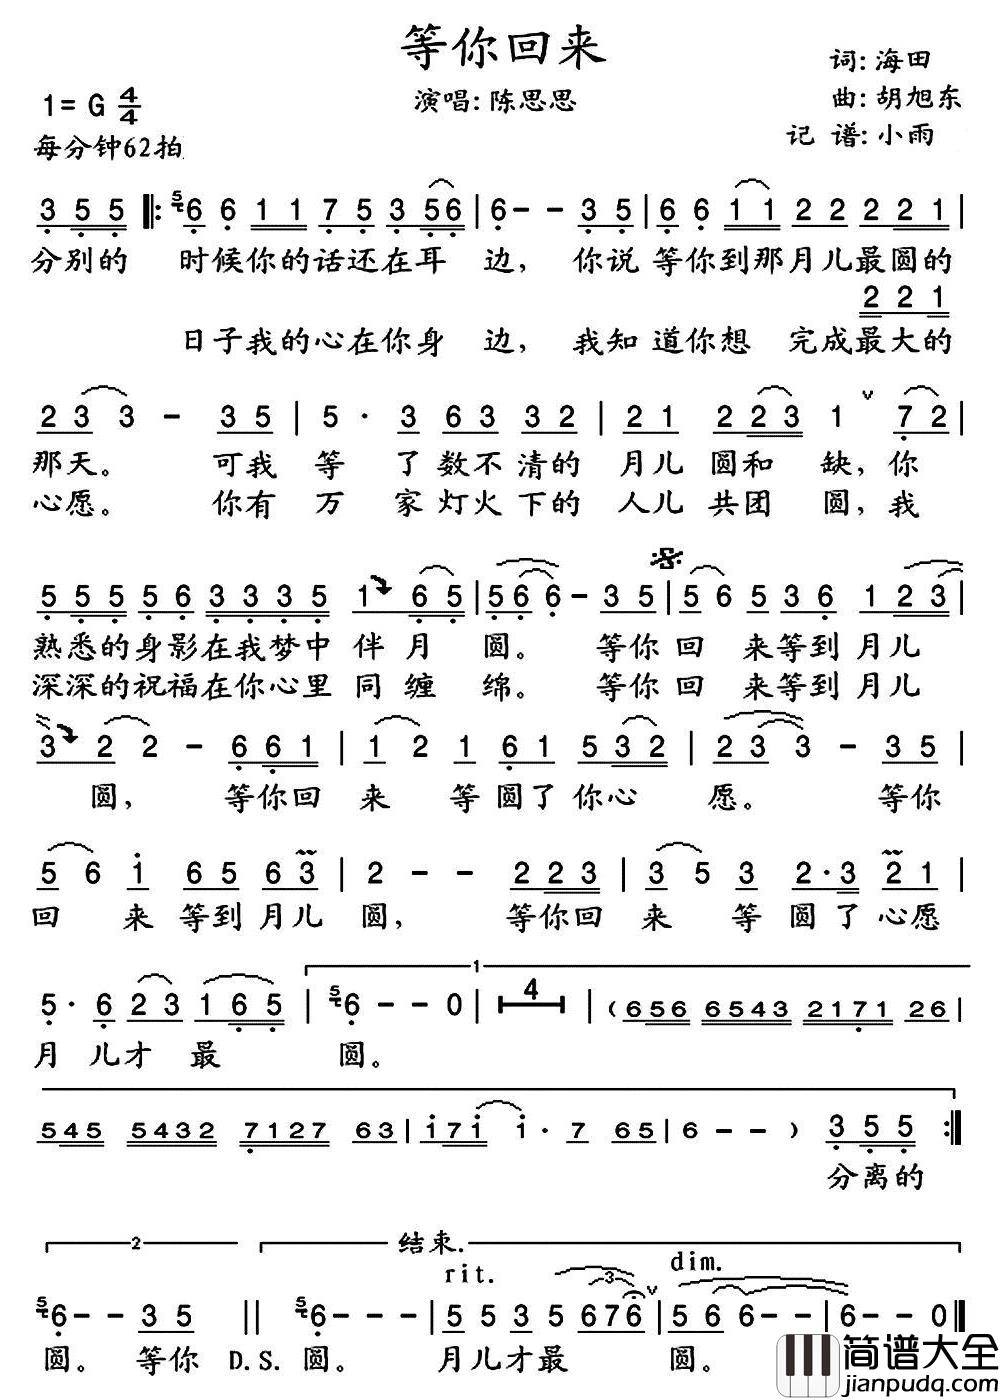 等你回来
词: 海田
1= G 4/4 演唱: 陈思思 曲: 胡旭东
每分钟62拍 记 谱: 小雨
3 5 5 ‖: 5 6 6 1 1 7 5 3 5 6 | 6 - - 3 5 | 6 6 1 1 2 2 2 2 1 |
分别的 时候你的话还在耳 边, 你说 等你到那月儿最圆的
2 2 1
日子我的心在你身 边, 我知 道你想 完成最大的
2 3 3 - 3 5 | 5 · 3 6 3 3 2 | 2 1 2 2 3 1 v 7 2 |
那天。 可我 等 了数不清的 月儿 圆和 缺, 你
心愿。 你有 万 家灯火下的 人儿 共团 圆, 我
5 5 5 5 6 3 3 3 5 1 6 5 | 5 6 6 - 3 5 | 5 6 5 3 6 1 2 3 |
熟悉的身影在我梦中 伴 月 圆。 等你 回 来等到月儿
深深的祝福在你心里 同 缠 绵。 等你 回 来等到月儿
3 2 2 - 6 6 1 | 1 2 1 6 1 5 3 2 | 2 3 3 - 3 5 |
圆, 等你回 来 等 圆了你心 愿。 等你
5 6 i 6 5 6 3 | 2 - - 2 2 3 | 3 5 3 2 · 3 2 1 |
回 来 等到月儿 圆, 等你回 来 等 圆了心愿
1
5 · 6 2 3 1 6 5 | 5 6 - - 0 | 4 | ( 6 5 6 6 5 4 3 2 1 7 1 2 6 |
月 儿才 最 圆。
5 4 5 5 4 3 2 7 1 2 7 6 3 | i 7 i i · 7 6 5 | 6 - - ) 3 5 5 :‖
分离的
2 结束.
rit. 3 dim.
5 6 - - 3 5 ‖ 5 6 - - | 5 5 3 5 6 7 6 v | 5 6 6 - - | 6 - - 0 ‖
圆。 等你 D.S. 圆。 月儿才最 圆。
简谱大全
jianpudq.com